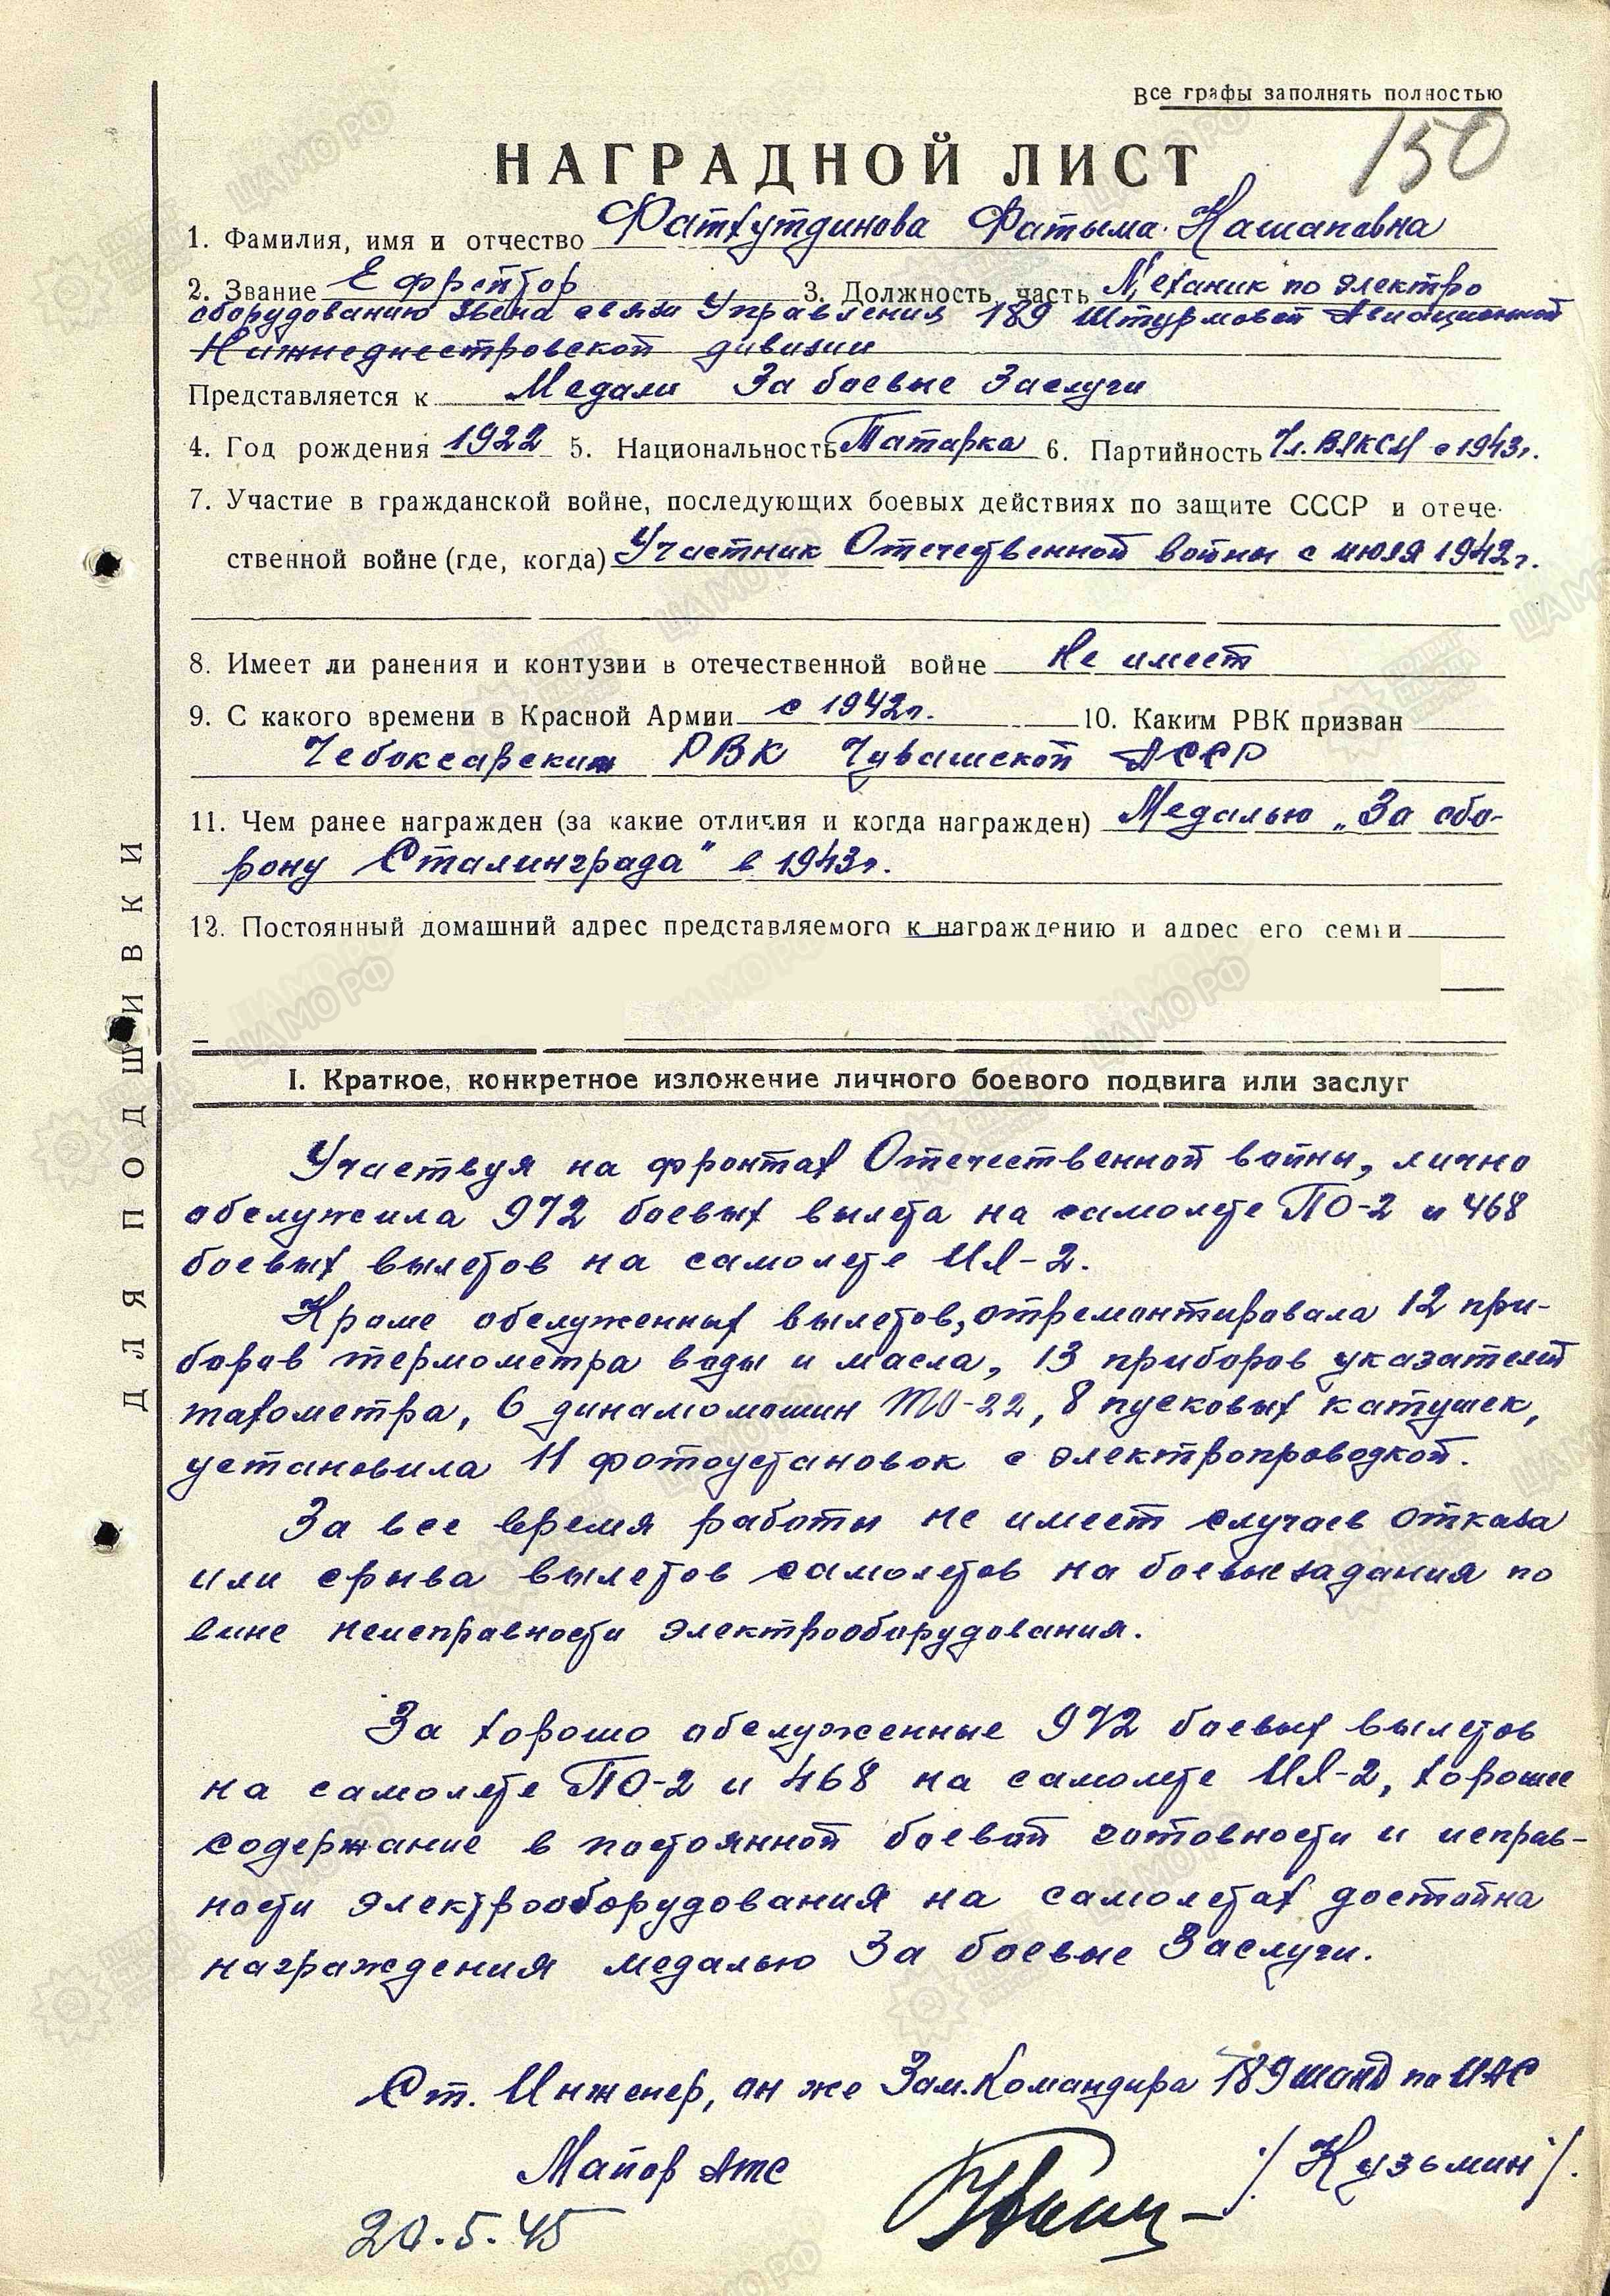 Все графы заполнять полностью
150
НАГРАДНОЙ ЛИСТ
1. Фамилия, имя и отчество Фатхутдинова Фатыма Кашаповна
2. Звание Ефрейтор 3. Должность, часть Механик по электро
оборудованию звена связи Управления 189 Штурмовой Авиационной
Нижнеднестровской дивизии
Представляется к Медали За боевые Заслуги
4. Год рождения 1922 5. Национальность Татарка 6. Партийность Чл. ВЛКСМ с 1943г.
7. Участие в гражданской войне, последующих боевых действиях по защите СССР и отече-
ственной войне (где, когда) Участник Отечественной войны с июля 1942г.
8. Имеет ли ранения и контузии в отечественной войне Не имеет
9. С какого времени в Красной Армии с 1942г. 10. Каким РВК призван
Чебоксарским РВК Чувашской АССР
11. Чем ранее награжден (за какие отличия и когда награжден) Медалью „За обо-
рону Сталинграда" в 1943г.
12. Постоянный домашний адрес представляемого к награждению и адрес его семьи
I. Краткое, конкретное изложение личного боевого подвига или заслуг
Участвуя на фронтах Отечественной войны, лично
обслужила 972 боевых вылета на самолете ПО-2 и 468
боевых вылетов на самолете ИЛ-2.
Кроме обслуженных вылетов, отремонтировала 12 при-
боров термометра воды и масла, 13 приборов указателей
тахометра, 6 динамомашин 8 пусковых катушек,
установила 11 фотоустановок с электропроводкой.
За все время работы не имеет случаев отказа
или срыва вылетов самолетов на боевые задания по
вине неисправности электрооборудования.
За хорошо обслуженные 972 боевых вылетов
на самолете ПО-2 и 468 на самолете ИЛ-2, хорошее
содержание в постоянной боевой готовности и исправ-
ности электрооборудования на самолетах достойна
награждения медалью За боевые Заслуги.
Ст. Инженер, он же Зам. Командира 189 шанд по ИАС
Майор Атс /Кузьмин/.
20.5.45
ДЛЯ ПОДШИВКИ
ЦАМО РФ